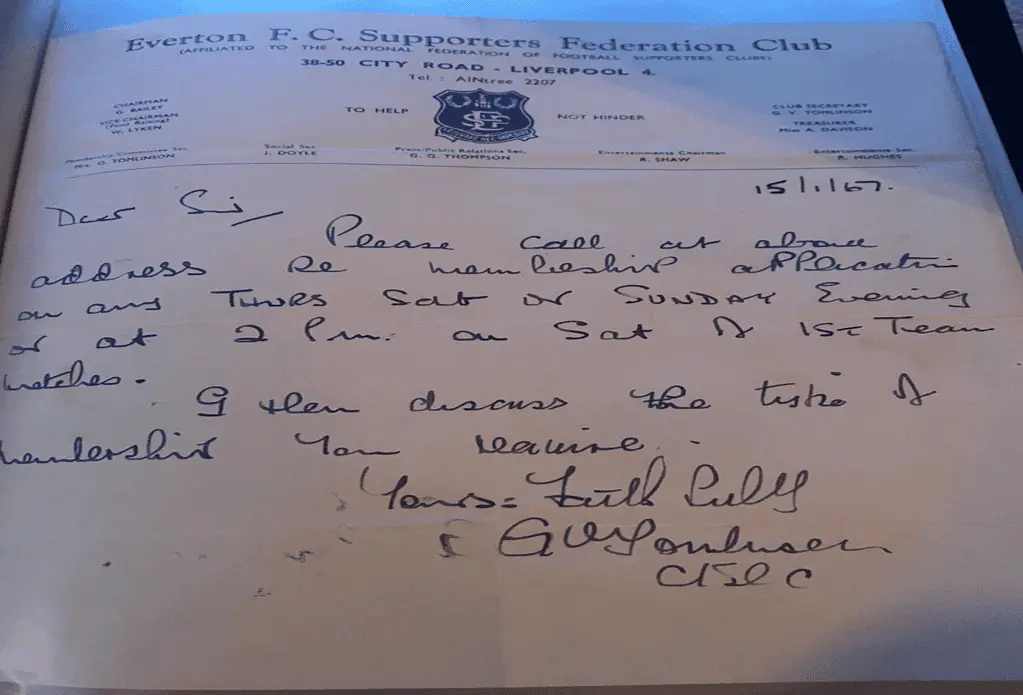 Everton F. C. Supporters Federation Club
(AFFILIATED TO THE NATIONAL FEDERATION OF FOOTBALL SUPPORTERS CLUBS)
38-50 CITY ROAD - LIVERPOOL 4.
Tel. : AINtree 2207
CHAIRMAN
G. BAILEY
VICE-CHAIRMAN
(Fund Raising)
W. LYKEN
TO HELP
NOT HINDER
CLUB SECRETARY
G. V. TOMLINSON
TREASURER
Miss A. DAVISON
Membership Committee Sec.
Mrs. O. TOMLINSON
Social Sec.
J. DOYLE
Press/Public Relations Sec.
G. G. THOMPSON
Entertainments Chairman
R. SHAW
Entertainments Sec.
R. HUGHES
15/1/67.
Dear Sir,
Please call at above
address Re membership application
on any THURS Sat or SUNDAY Evening
or at 2 Pm. on Sat of 1st Team
matches.
then discuss the of
membership You require.
Yours Faithfully
G V Tomlinson